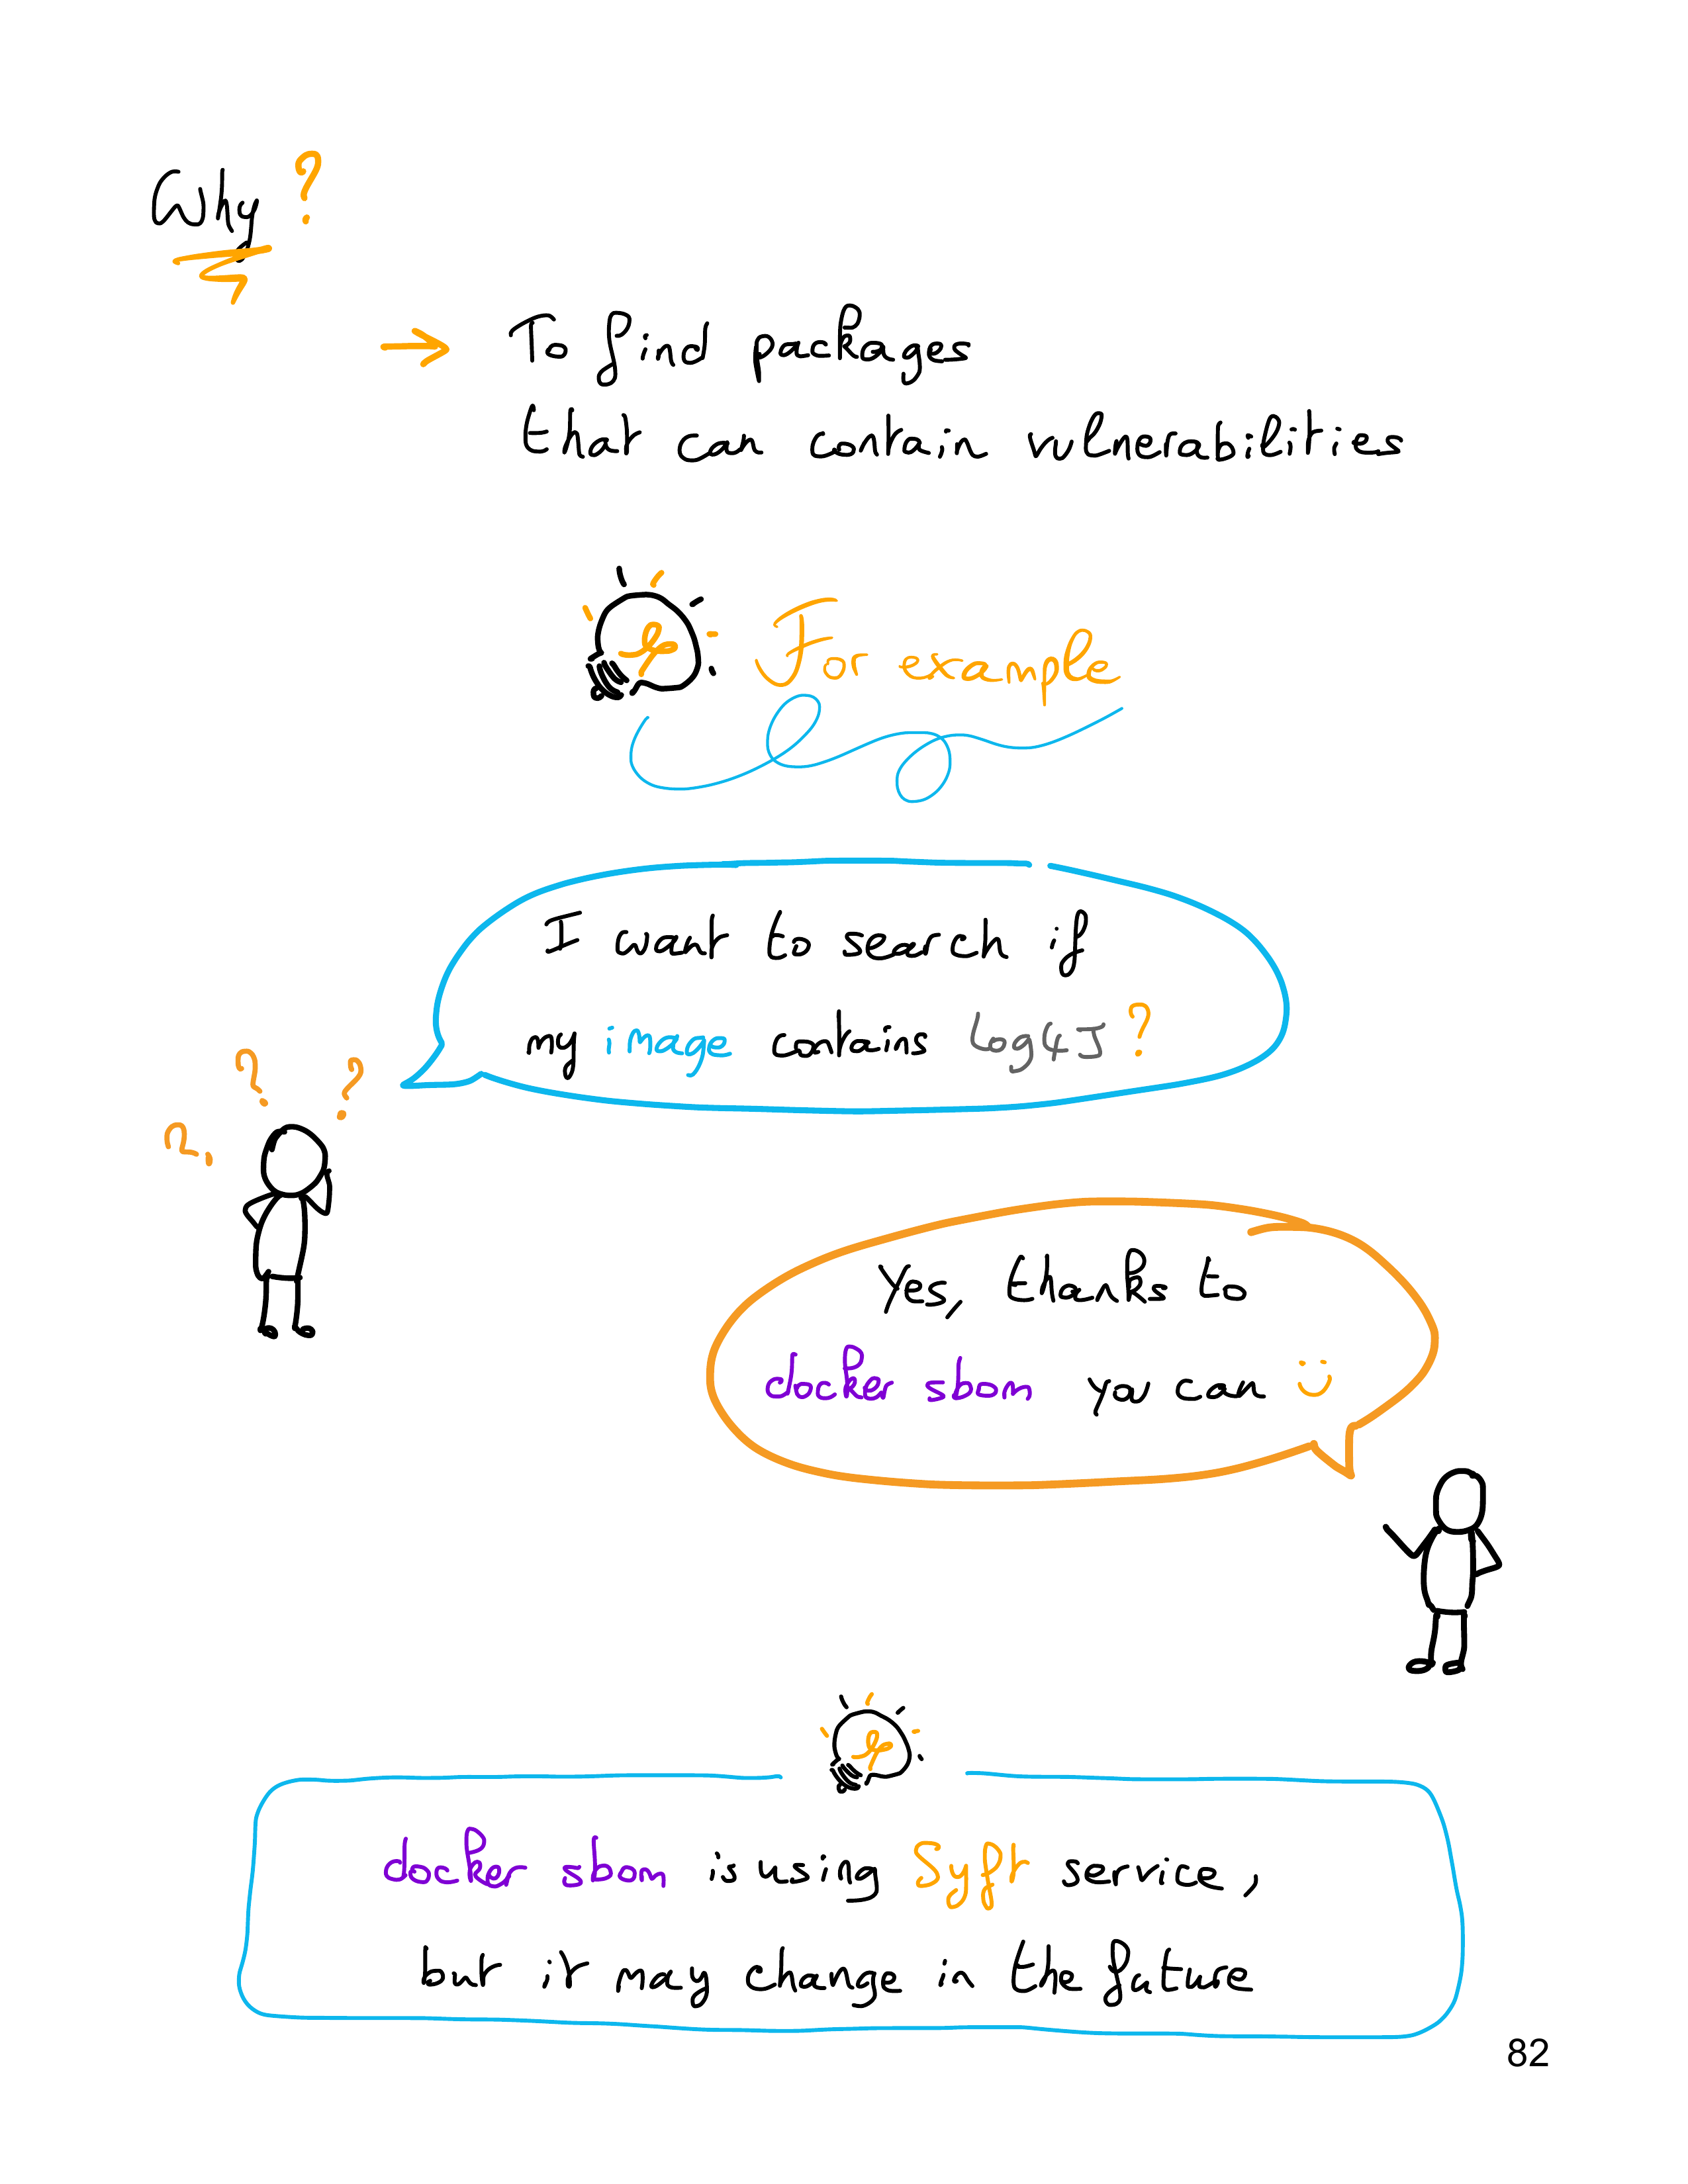 Why ?
→ To find packages
that can contain vulnerabilities
For example
I want to search if
my image contains Log4J ?
? ? ?
Yes, thanks to
docker sbom you can :)
docker sbom is using Syft service,
but it may change in the future
82